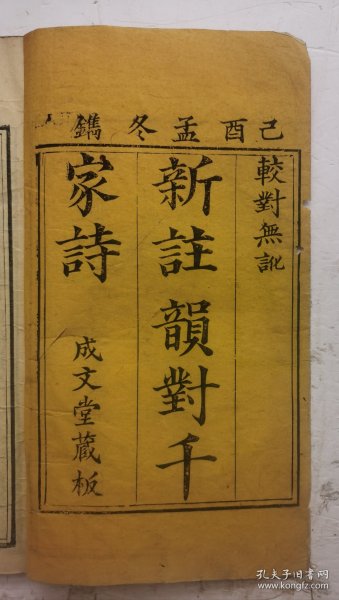 己酉孟冬鐫
較對無訛
新註韻對千
家詩
成文堂藏板
孔夫子旧书网
www.kongfz.com